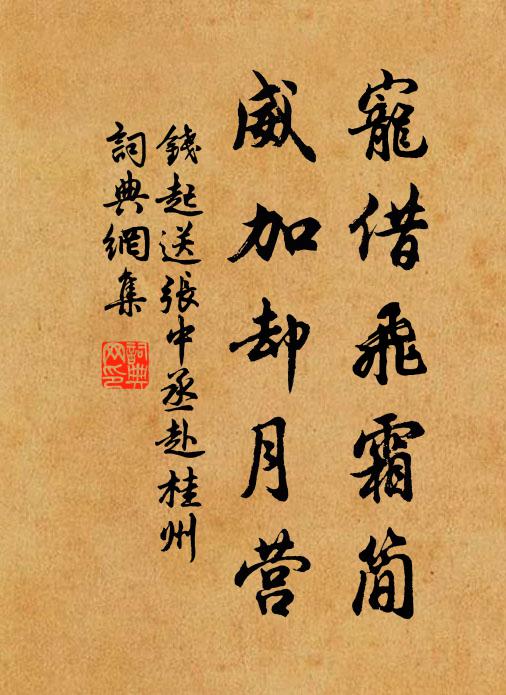 寵借飛霜簡
威加却月营
錢起送張中丞赴桂州
詞典網集
詞典
网印